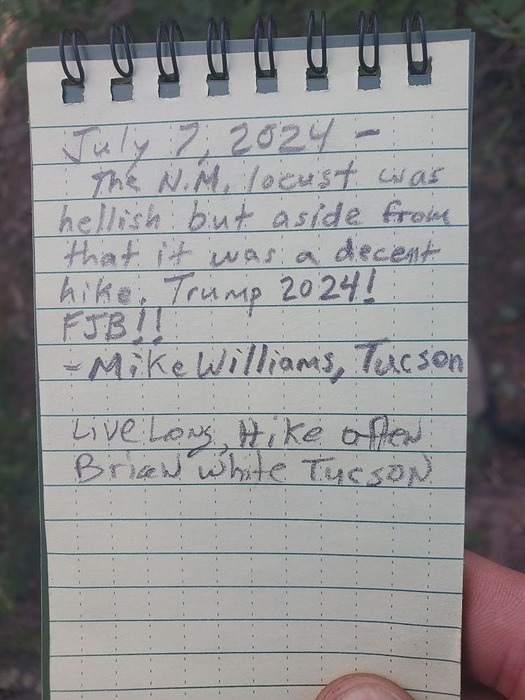 July 7, 2024 -
The N.M. locust was
hellish but aside from
that it was a decent
hike. Trump 2024!
FJB!!
- Mike Williams, Tucson
Live Long, Hike often
Brian White Tucson